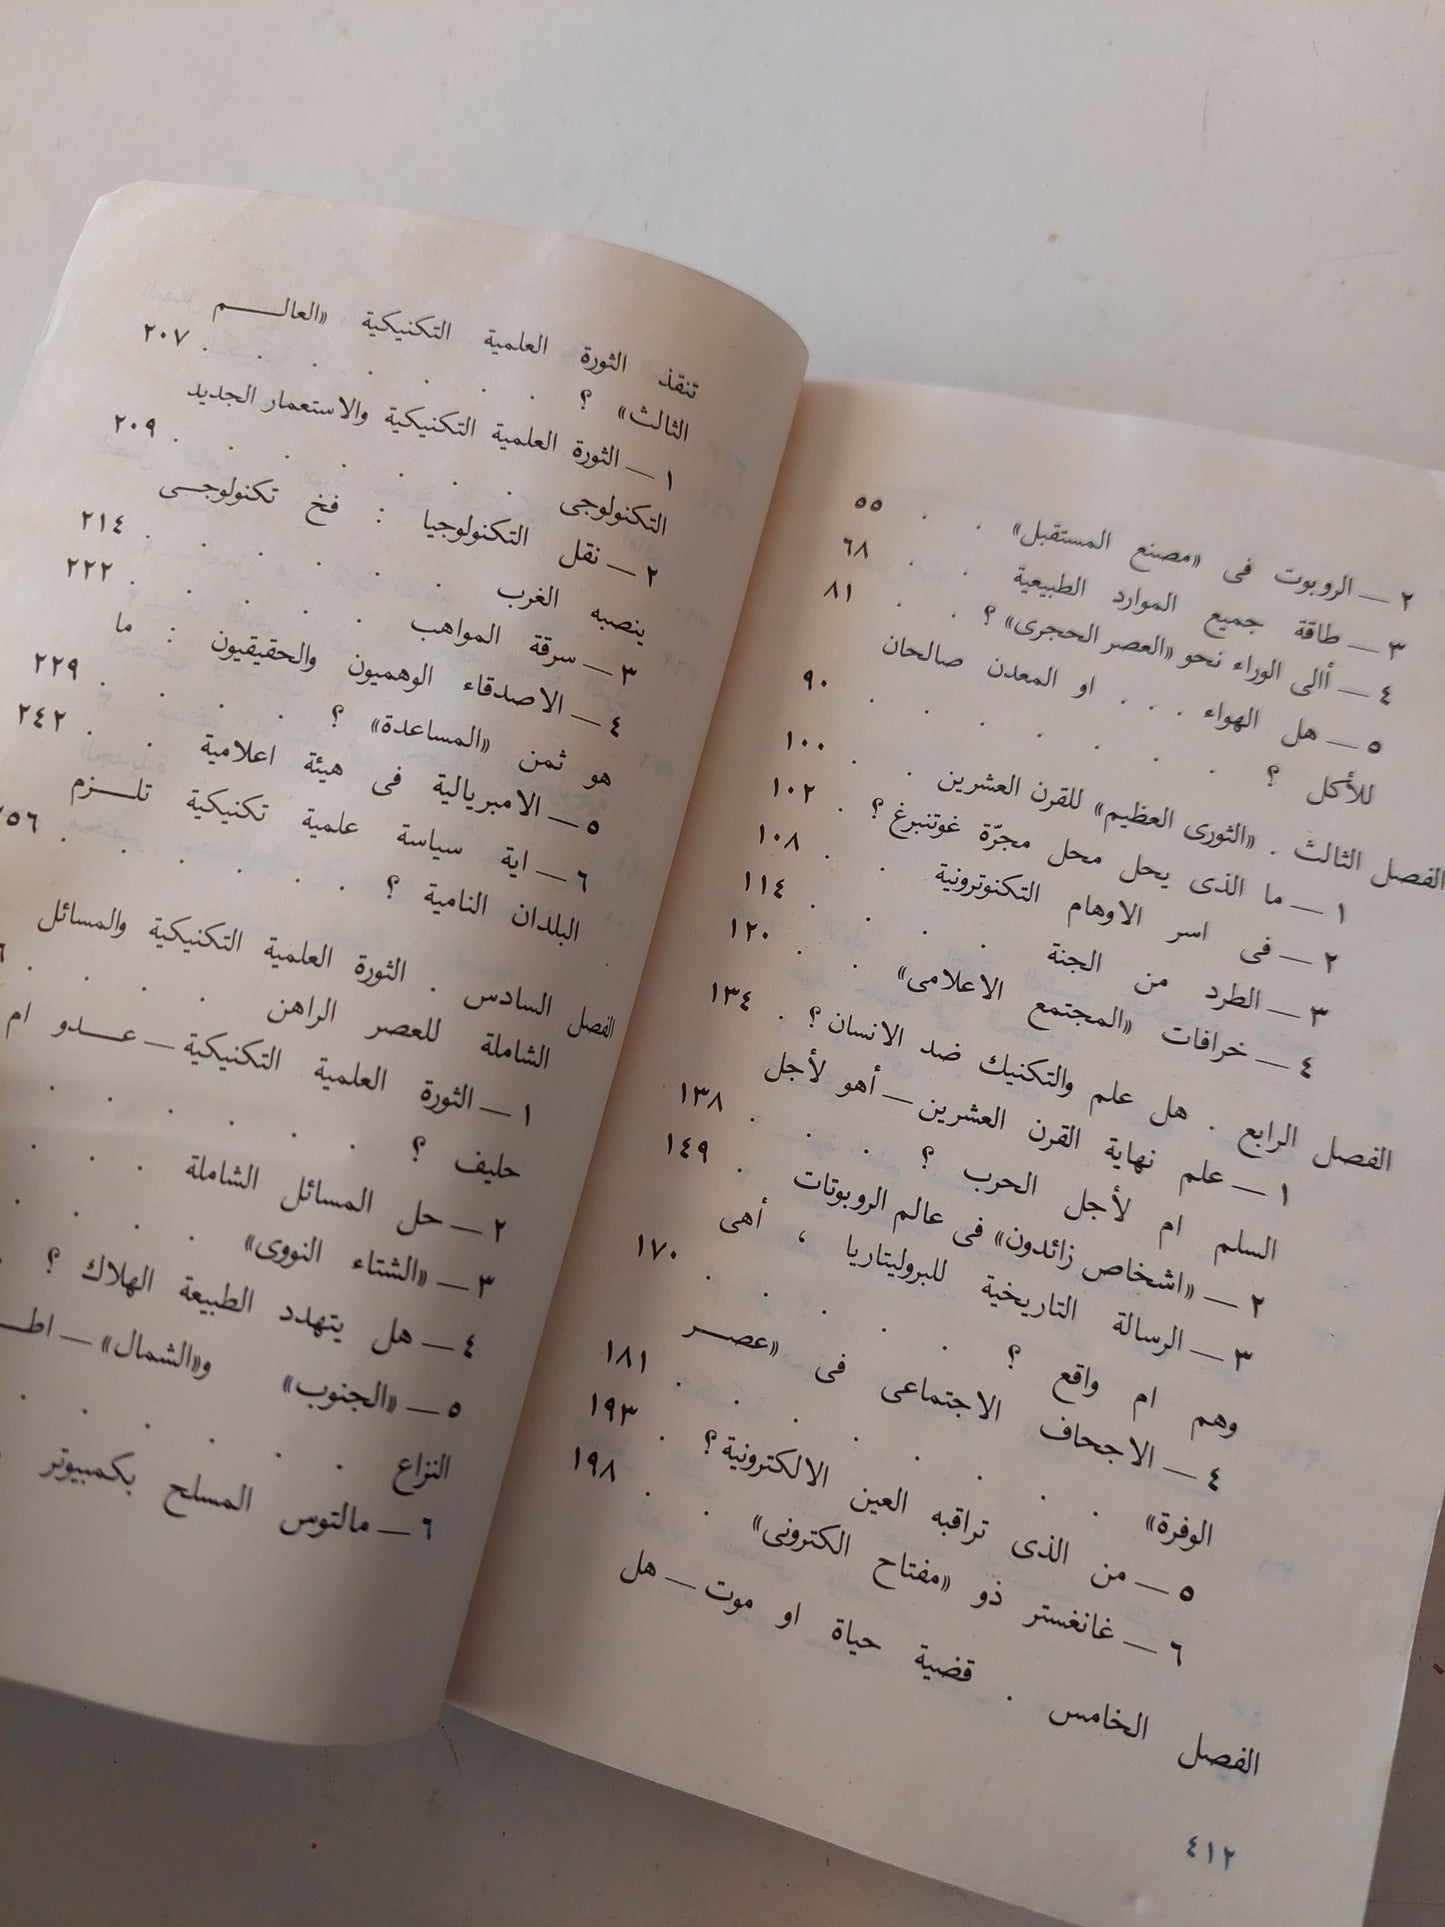 ٢ — الروبوت فى «مصنع المستقبل» . . ٥٥
٣ — طاقة جميع الموارد الطبيعية . . . ٦٨
٤ — أالى الوراء نحو «العصر الحجرى» ؟ . . ٨١
٥ — هل الهواء . . . او المعدن صالحان
للأكل ؟ . . . . . . . ٩٠
الفصل الثالث . «الثورى العظيم» للقرن العشرين . . ١٠٠
١ — ما الذى يحل محل مجرّة غوتنبرغ ؟ . ١٠٢
٢ — فى اسر الاوهام التكنوترونية . . ١٠٨
٣ — الطرد من الجنة . . . . ١١٤
٤ — خرافات «المجتمع الاعلامى» . . ١٢٠
الفصل الرابع . هل علم والتكنيك ضد الانسان ؟ . ١٣٤
١ — علم نهاية القرن العشرين — أهو لأجل
السلم ام لأجل الحرب ؟ . . . ١٣٨
٢ — «اشخاص زائدون» فى عالم الروبوتات . ١٤٩
٣ — الرسالة التاريخية للبروليتاريا ، أهى
وهم ام واقع ؟ . . . . . ١٧٠
٤ — الاجحاف الاجتماعى فى «عصر
الوفرة» . . . . . . . ١٨١
٥ — من الذى تراقبه العين الالكترونية ؟ . ١٩٣
٦ — غانغستر ذو «مفتاح الكترونى» . . ١٩٨
الفصل الخامس . قضية حياة او موت — هل
٤١٢
تنقذ الثورة العلمية التكنيكية «العالم
الثالث» ؟ . . . . . . ٢٠٧
١ — الثورة العلمية التكنيكية والاستعمار الجديد
التكنولوجى . . . . . . ٢٠٩
٢ — نقل التكنولوجيا : فخ تكنولوجى
ينصبه الغرب . . . . . . ٢١٤
٣ — سرقة المواهب . . . . . ٢٢٢
٤ — الاصدقاء الوهميون والحقيقيون : ما
هو ثمن «المساعدة» ؟ . . . . ٢٢٩
٥ — الامبريالية فى هيئة اعلامية . . ٢٤٢
٦ — اية سياسة علمية تكنيكية تلزم
البلدان النامية ؟ . . . . . ٢٥٦
الفصل السادس . الثورة العلمية التكنيكية والمسائل
الشاملة للعصر الراهن . . . .
١ — الثورة العلمية التكنيكية — عدو ام
حليف ؟ . . . . . .
٢ — حل المسائل الشاملة . . . .
٣ — «الشتاء النووى» . . . .
٤ — هل يتهدد الطبيعة الهلاك ؟ .
٥ — «الجنوب» و«الشمال» —
النزاع . . . . . .
٦ — مالتوس المسلح بكمبيوتر